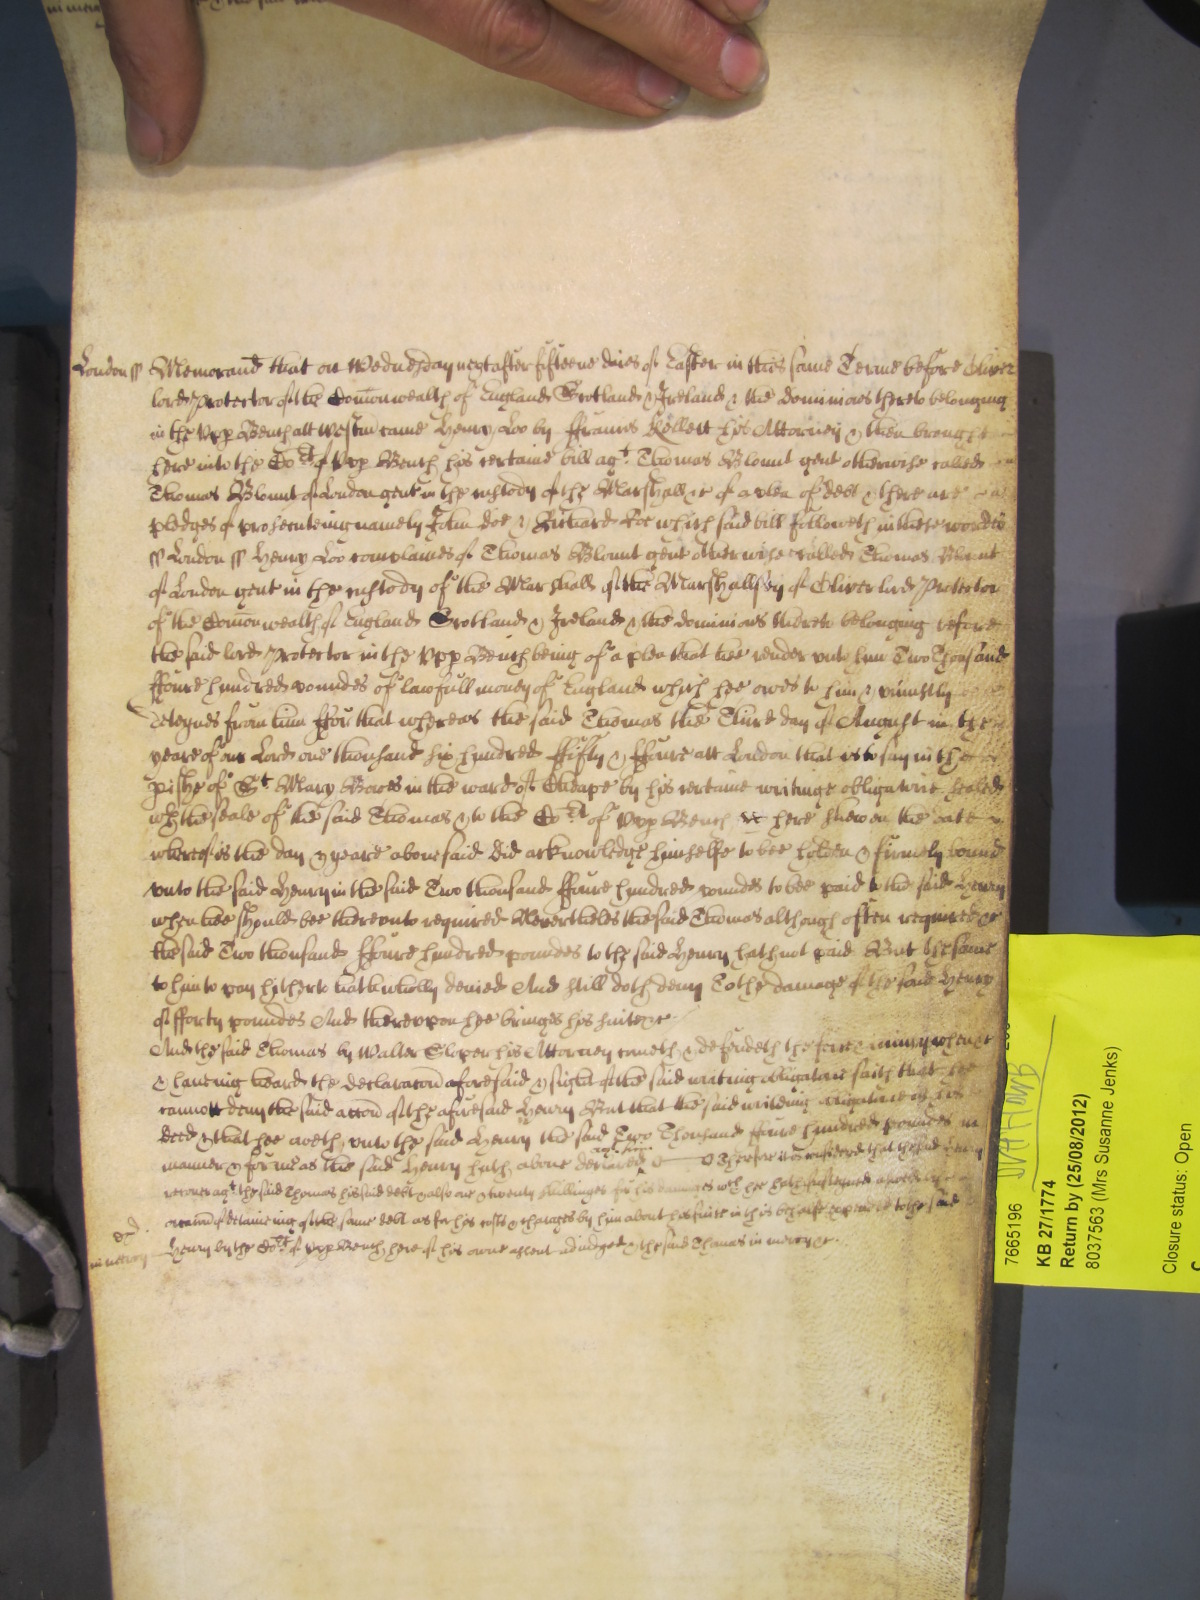 London ss Memorand that on Wednesday next after fifteene daies of Easter in this same Terme before Oliver
lord Protector of the Comonwealth of England Scotland & Ireland & the dominions thereto belonging
in the Upp Bench att Westm came Henry Loo by ffrancis Kellett his Attorney & then brought
here into the Cort of Upp Bench his certaine bill agt Thomas Blount gent otherwise called
Thomas Blount of London gent in the custody of the Marshall &c of a plea of debt & there are
pledges of prosecuteing namely John Doe & Richard Roe which said bill followeth in these wordes
ss London ss Henry Loo complaines of Thomas Blount gent otherwise called Thomas Blount
of London gent in the custody of the Marshall of the Marshallsey of Oliver lord Protector
of the Comonwealth of England Scotland & Ireland & the dominions thereto belonging before
the said lord Protector in the Upp Bench being of a plea that hee render unto him Two Thousand
ffoure hundred poundes of lawfull money of England which hee owes to him & uniustly
deteynes from him ffor that whereas the said Thomas the Third day of August in the
yeare of our Lord one thousand six hundred ffifty & ffoure att London that is to say in the
pishe of St Mary Bowes in the ward of Cheape by his certaine writinge obligatorie sealed
wth the seale of the said Thomas & to the Cort of Upp Bench here shewen the date
whereof is the day & yeare abovesaid did acknowledge himselfe to bee holden & firmely bound
unto the said Henry in the said Two thousand ffoure hundred poundes to bee paid to the said Henry
when hee should bee thereunto required Neverthelesse the said Thomas although often required &c
the said Two thousand ffoure hundred poundes to the said Henry hath not paid But the same
to him to pay hitherto hath wholly denied And still doth deny To the damage of the said Henry
of fforty poundes And thereupon hee bringes his suite &c
And the said Thomas by Walter Sloper his Attorney cometh & defendeth the force & iniury when &c
& haveing heard the declaracon aforesaid & sight of the said writing obligatorie saith that hee
cannott deny the said accon of the aforesaid Henry But that the said writeing obligatorie is his
deed & that hee oweth unto the said Henry the said Two Thousand ffoure hundred poundes in
manner & forme as the said Henry hath above declared agt him Therefore it is considered that the said Henry
recover agt the said Thomas his said debt & also one & twenty shillinges for his damages wch hee hath susteyned aswell by
occasion of detaineing of the same debt as for his costs & charges by him about his suite in this behalfe expended to the said
Henry by the Cort of Upp Bench here of his owne assent adiudged & the said Thomas in mercy &c
in mercy
7665196
KB 27/1774
Return by (25/08/2012)
8037563 (Mrs Susanne Jenks)
Closure status: Open